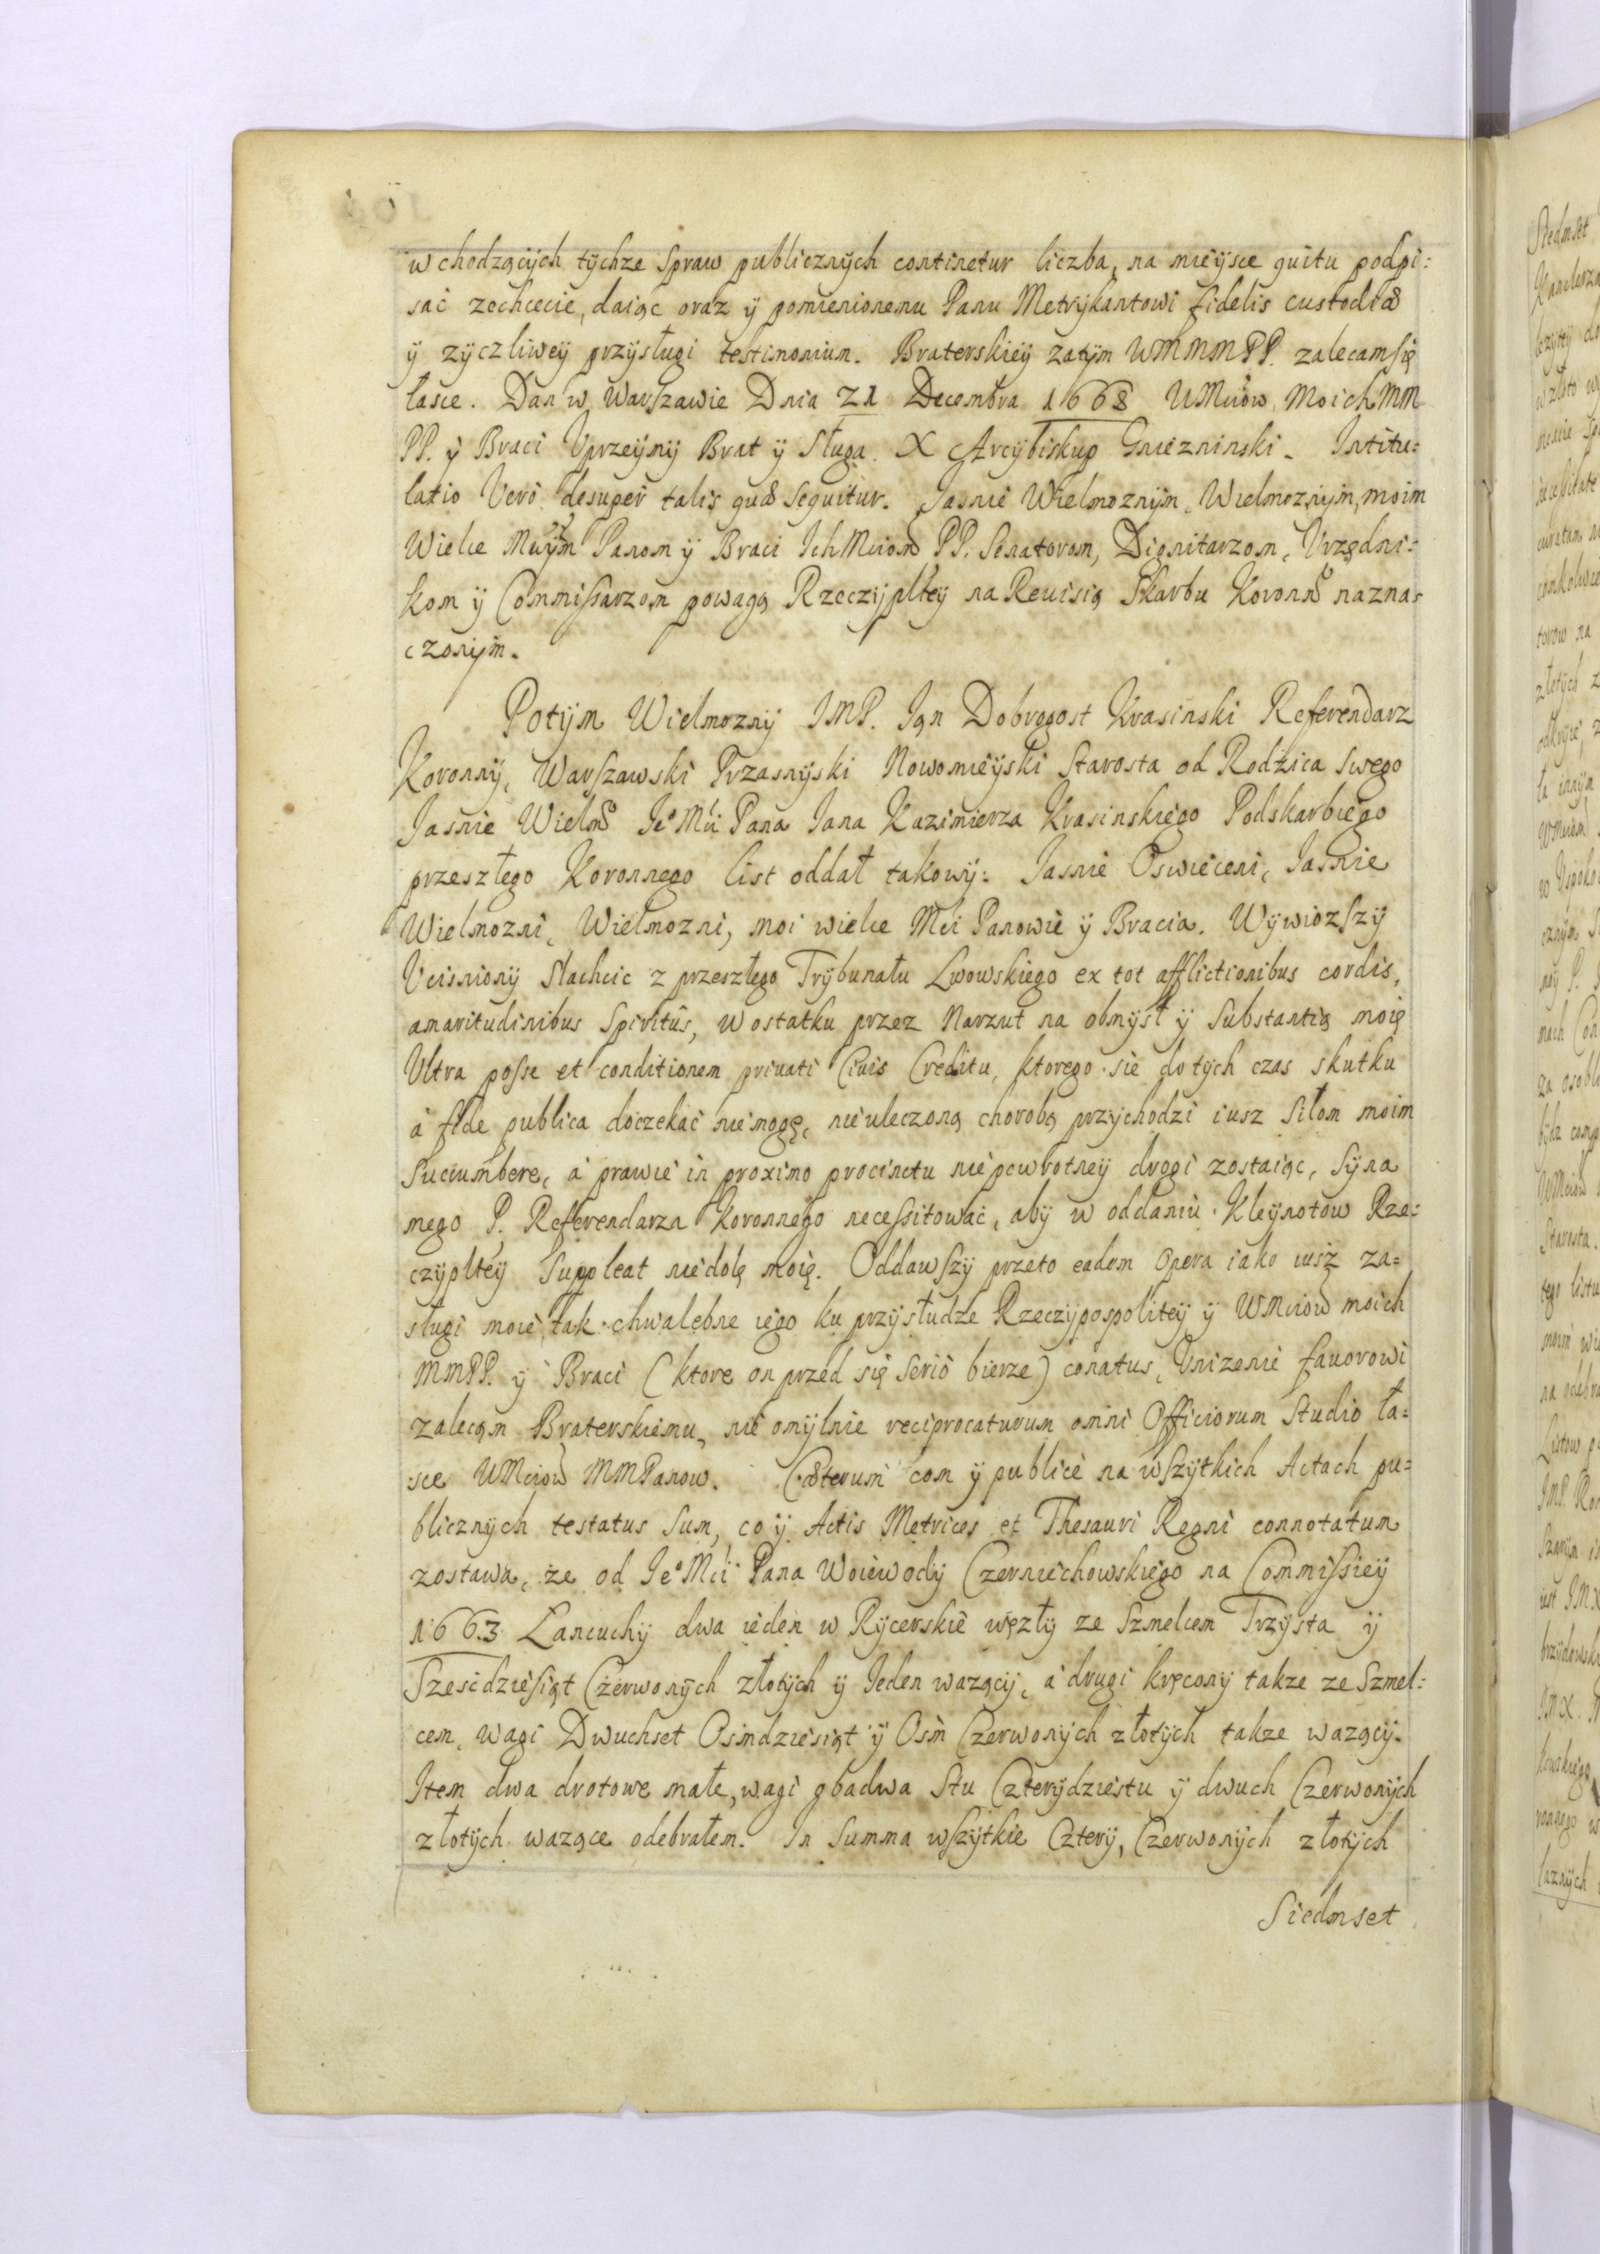 wchodzących tychze Spraw publicznych continetur liczba, na mieysce quitu podpi:
sać zechcecie, daiąc oraz y pomienionemu Panu Metrykantowi fidelis custodiæ
ÿ zyczliwey przysługi testimonium. Braterskiey zatym WMMMPP. zalecam się
łasce. Dan w Warszawie Dnia 21 Decembra 1668 WMciów Moich MM
PP. ÿ Braci Vprzeymy Brat ÿ Sługa X Arcybiskup Gniezninski. Intitu:
latio Vero desuper talis quæ sequitur. Jasnie Wielmoznym, Wielmoznym, moim
Wielce Mciwym Panom ÿ Braci Ich Mciom PP. Senatorom, Dignitarzom, Vrzędni:
kom ÿ Commissarzom powagą Rzeczypltey na Reuisią Skarbu Koronn. nazna:
czonym.
Potym Wielmozny JMP. Jan Dobrogost Krasinski Referendarz
Koronny, Warszawski Przasnyski Nowomieyski Starosta od Rodzica swego
Jasnie Wielm. Je° Mći Pana Jana Kazimierza Krasinskiego Podskarbiego
przeszłego Koronnego list oddał takowy: Jasnie Oswieceni, Jasnie
Wielmozni, Wielmozni, moi wielce Mći Panowie ÿ Bracia. Wywiozszy
Vcisniony Slachcic z przeszłego Trybunału Lwowskiego ex tot afflictionibus cordis,
amaritudinibus Spiritûs, w ostatku przez Narzut na obmysł ÿ Substantią moię
Vltra posse et conditionem priuati Ciuis Creditu, ktorego się do tych czas skutku
à fide publica doczekać niemogę, nieuleczoną chorobą przychodzi iusz siłom moim
Succumbere, à prawie in proximo procinctu niepowrotney drogi zostaiąc, Syna
mego P. Referendarza Koronnego necessitować, aby w oddaniu Kleynotow Rze:
czypltey Suppleat niedolę moię. Oddawszy przeto eadem Opera iako iusz za:
sługi moie, tak chwalebne iego ku przysłudze Rzeczypospolitey ÿ WMciow moich
MMPP. ÿ Braci (ktore on przed się serio bierze) conatus, Vnizenie fauorowi
zalecam Braterskiemu, nie omylnie reciprocaturum omni Officiorum Studio ła:
sce WMciow MMPanow. Cæterum com ÿ publice na wszytkich Actach pu:
blicznych testatus Sum, co ÿ Actis Metrices et Thesauri Regni connotatum
zostawa, ze od Je° Mći Pana Woiewody Czerniechowskiego na Commissiey
1663 Lancuchy dwa ieden w Rycerskie węzły ze Szmelcem Trzysta ÿ
Szescdziesiąt Czerwonych złotych ÿ Jeden wazący, à drugi kręcony takze ze Szmel:
cem, wagi Dwuchset Osmdziesiąt ÿ Osm Czerwonych złotych takze wazący.
Item dwa drotowe małe, wagi obadwa Stu Czterydziestu ÿ dwuch Czerwonych
złotych wazące odebrałem. In Summa wszytkie Cztery, Czerwonych złotych
Siedmset